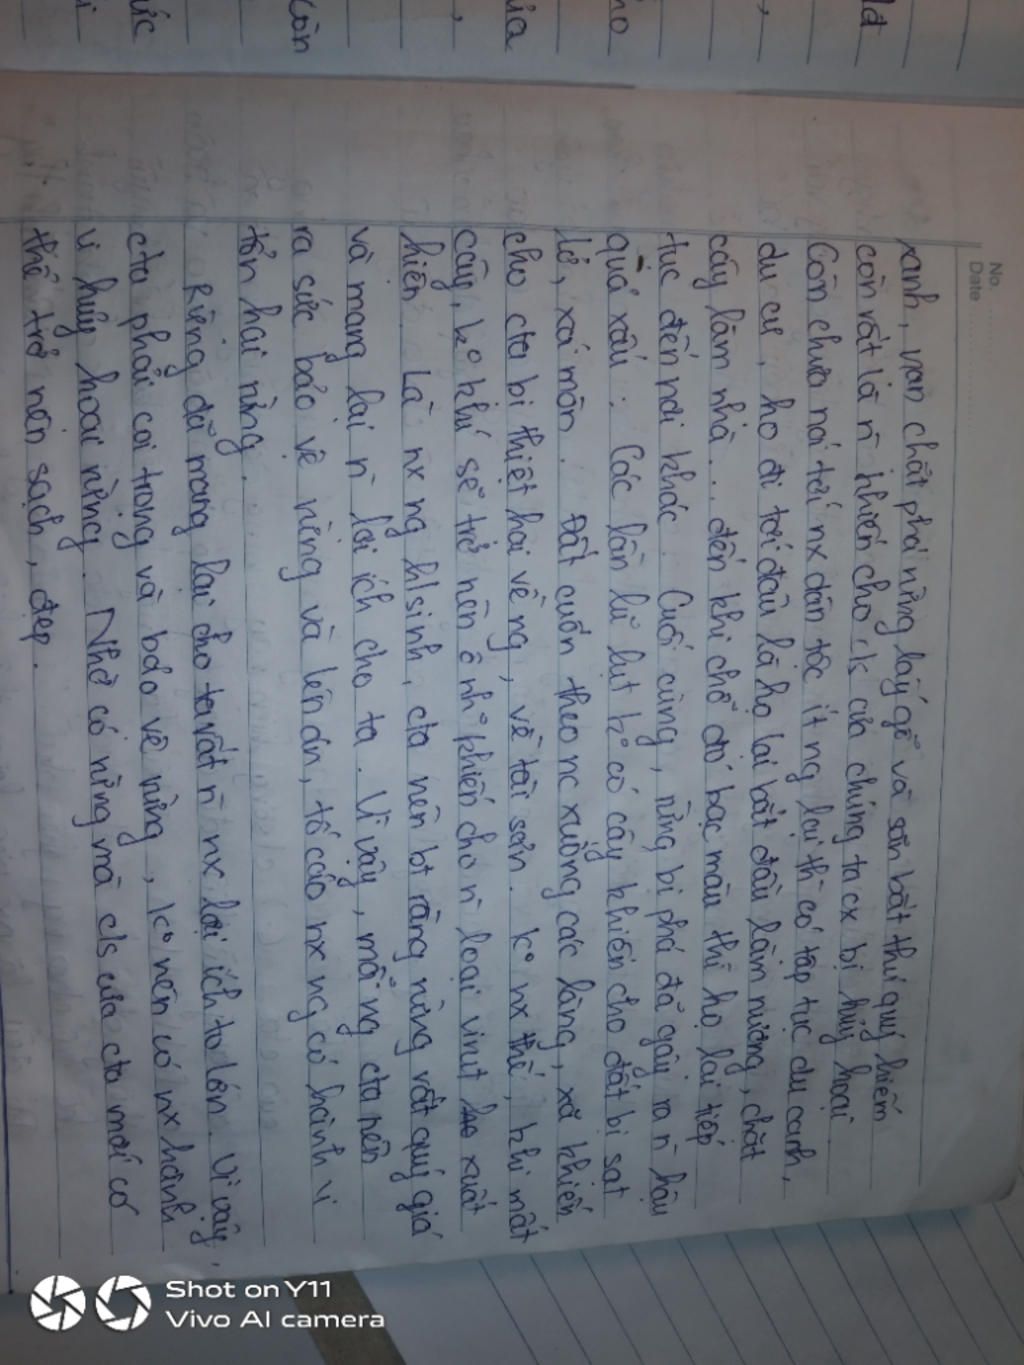 No.
Date
xanh, vẫn chặt phá rừng lấy gỗ và săn bắt thú quý hiếm
còn rất là n̄ khiến cho k của chúng ta cx bị hủy hoại
Còn chưa nói tới nx dân tộc ít ng lại thì có tập tục du canh,
du cư, họ đi tới đâu là họ lại bắt đầu làm nương, chặt
cây làm nhà ... đến khi chỗ đó bạc màu thì họ lại tiếp
tục đến nơi khác. Cuối cùng, rừng bị phá đã gây ra n̄ hậu
quả xấu: Các lần lũ lụt ko có cây khiến cho đất bị sạt
lở, xói mòn. Đất cuốn theo nc xuống các làng, xã khiến
cho cta bị thiệt hại về ng, về tài sản. ko nx thế, khi mất
cây, ko khí sẽ trở nên ô nho khiến cho n̄ loại virut xuất
hiện. Là nx ng h/sinh, cta nên bt rằng rừng rất quý giá
và mang lại n̄ lợi ích cho ta. Vì vậy, mỗi ng cta nên
ra sức bảo vệ rừng và lên án, tố cáo nx ng có hành vi
tổn hại rừng.
Rừng đã mang lại cho ta rất n̄ nx lợi ích to lớn. Vì vậy,
cta phải coi trọng và bảo vệ rừng, ko nên có nx hành
vi hủy hoại rừng. Nhờ có rừng mà c/s của cta mới có
thể trở nên sạch, đẹp.
còn
của
cho
Shot on Y11
Vivo AI camera